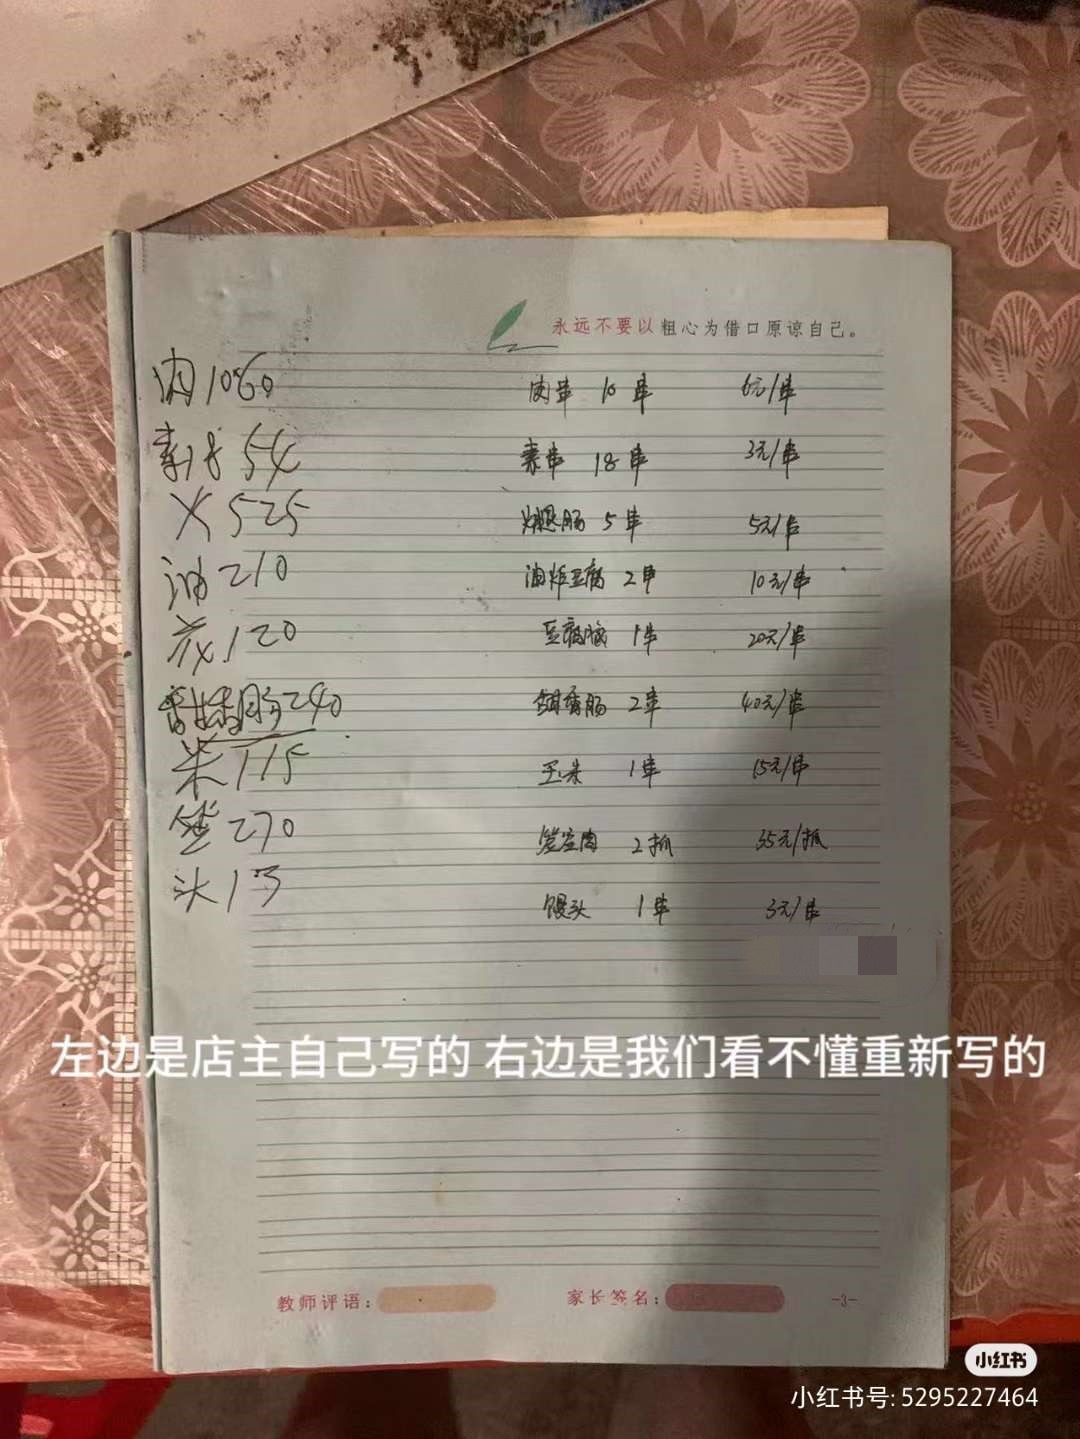 永远不要以粗心为借口原谅自己。
肉 10 60 肉串 10 串 6元/串
素 18 54 素串 18 串 3元/串
火 5 25 火腿肠 5 串 5元/串
油 2 10 油炸豆腐 2串 10元/串
1 20 豆腐脑 1串 20元/串
肠 2 40 香肠 2串 40元/串
米 1 15 玉米 1串 15元/串
签 2 70 2抓 35元/抓
头 1 3 馒头 1串 3元/串
左边是店主自己写的 右边是我们看不懂重新写的
教师评语: 家长签名: -3-
小红书
小红书号: 5295227464